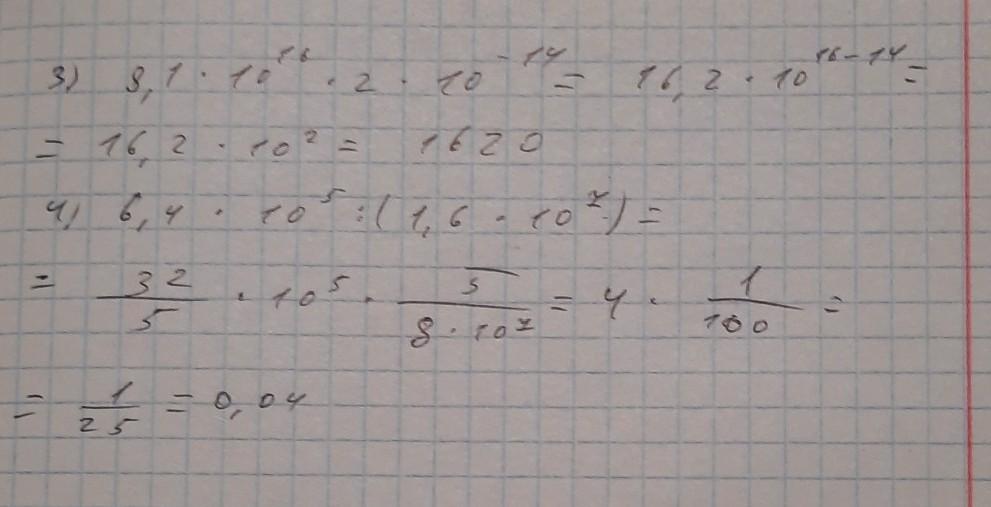 3) 8,1 · 10¹⁶ · 2 · 10⁻¹⁴ = 16,2 · 10¹⁶⁻¹⁴ =
= 16,2 · 10² = 1620
4) 6,4 · 10⁵ : (1,6 · 10⁷) =
= 32/5 · 10⁵ · 5/(8 · 10⁷) = 4 · 1/100 =
= 1/25 = 0,04